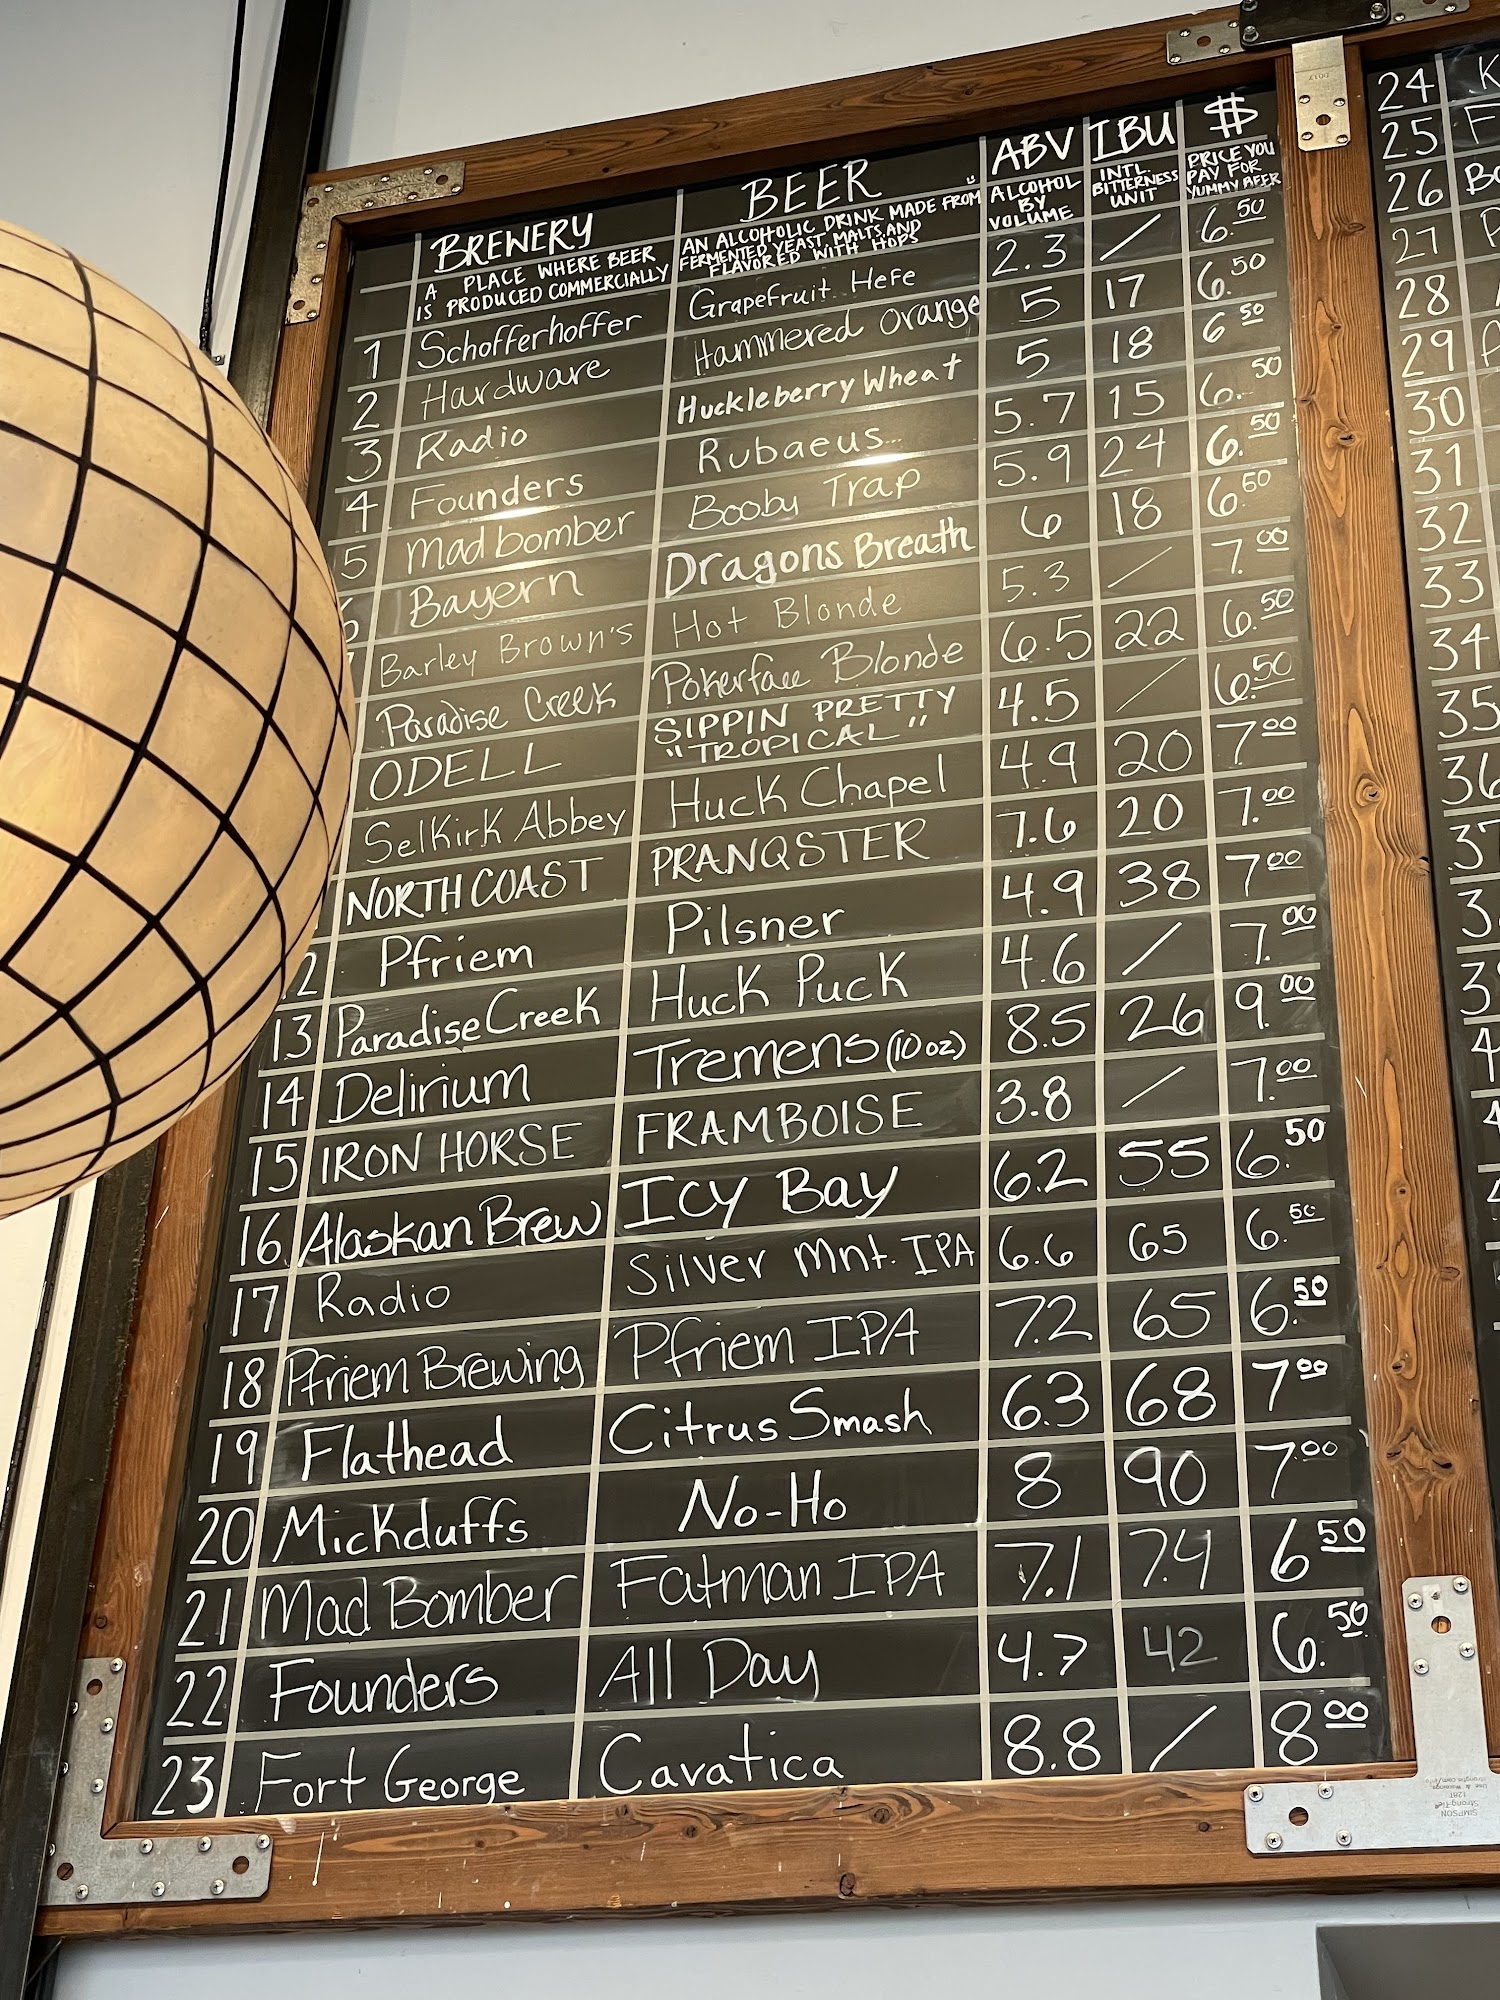 BREWERY BEER ABV IBU $
A PLACE WHERE BEER
IS PRODUCED COMMERCIALLY
AN ALCOHOLIC DRINK MADE FROM
FERMENTED YEAST, MALTS, AND
FLAVORED WITH HOPS
ALCOHOL
BY
VOLUME
INTL.
BITTERNESS
UNIT
PRICE YOU
PAY FOR
YUMMY BEER
1 Schofferhoffer Grapefruit Hefe 2.3 / 6.50
2 Hardware Hammered Orange 5 17 6.50
3 Radio Huckleberry Wheat 5 18 6 50
4 Founders Rubaeus 5.7 15 6.50
5 Mad bomber Booby Trap 5.9 24 6.50
Bayern Dragons Breath 6 18 6.50
Barley Brown's Hot Blonde 5.3 / 7.00
Paradise Creek Pokerface Blonde 6.5 22 6.50
ODELL SIPPIN PRETTY
"TROPICAL" 4.5 / 6.50
Selkirk Abbey Huck Chapel 4.9 20 7.00
NORTH COAST PRANQSTER 7.6 20 7.00
2 Pfriem Pilsner 4.9 38 7.00
13 Paradise Creek Huck Puck 4.6 / 7.00
14 Delirium Tremens (10 oz) 8.5 26 9.00
15 IRON HORSE FRAMBOISE 3.8 / 7.00
16 Alaskan Brew ICY BAY 6.2 55 6.50
17 Radio Silver Mnt. IPA 6.6 65 6.50
18 Pfriem Brewing Pfriem IPA 7.2 65 6.50
19 Flathead Citrus Smash 6.3 68 7.00
20 Mickduffs No-Ho 8 90 7.00
21 Mad Bomber Fatman IPA 7.1 74 6 50
22 Founders All Day 4.7 42 6.50
23 Fort George Cavatica 8.8 / 8.00
24
25
26
27
28
29
30
31
32
33
34
35
36
SIMPSON
Strong-Tie